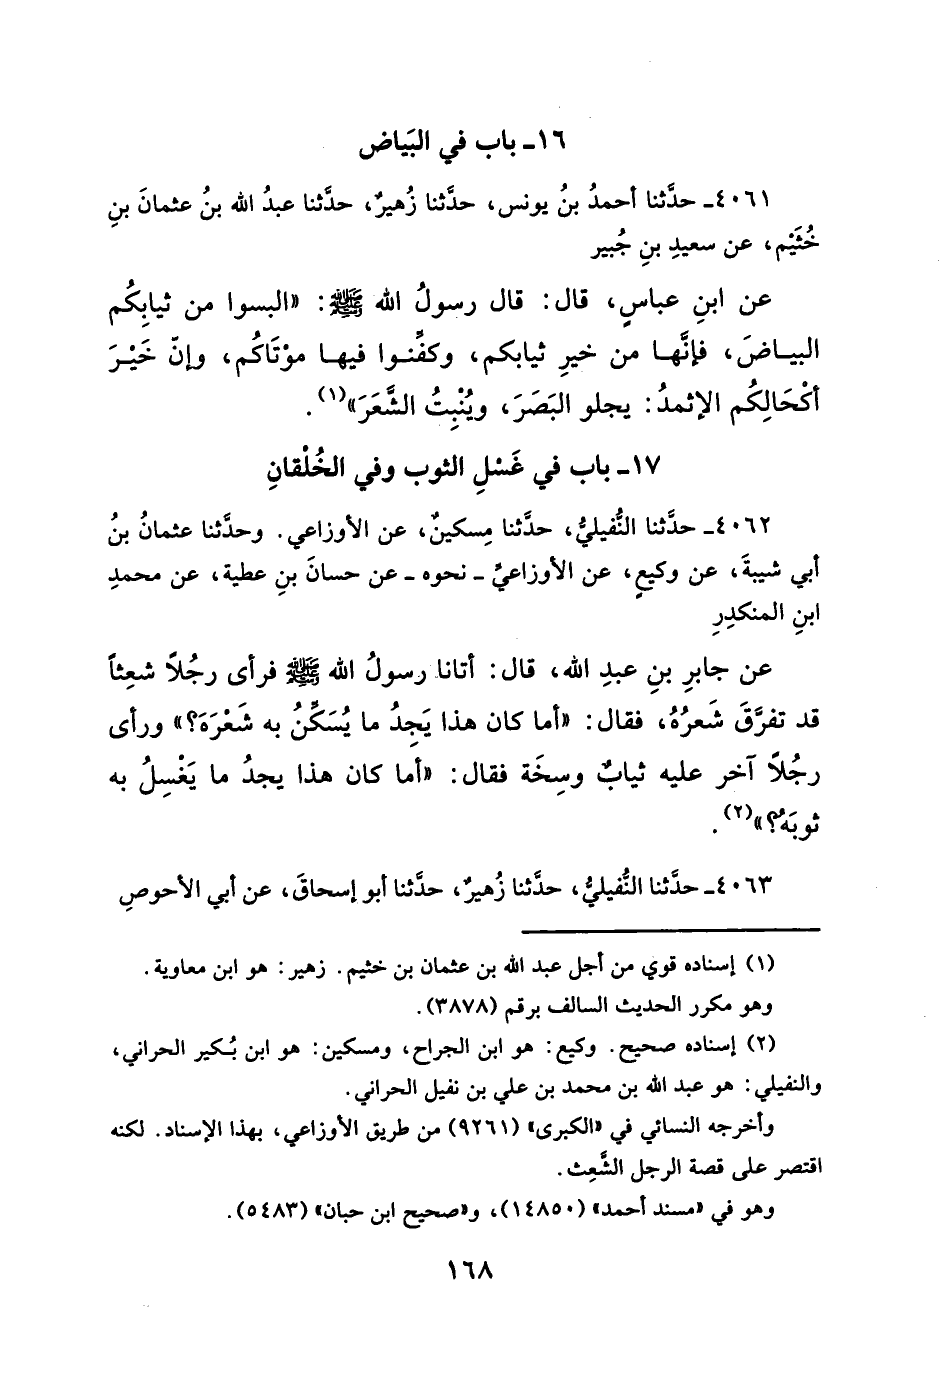 ١٦ـ باب في البَيَاض
٤٠٦١ـ حدَّثنا أحمدُ بنُ يونس، حدَّثنا زُهيرٌ، حدَّثنا عبدُ الله بنُ عثمانَ بنِ
خُثَيْم، عن سعيدِ بنِ جُبير
عن ابنِ عباسٍ، قال: قال رسولُ الله ﷺ: «البسوا من ثيابِكُم
البيـاضَ، فإنَّهـا من خيرِ ثيابكم، وكفِّنـوا فيهـا موْتَاكُم، وإنّ خَيْـرَ
أكْحَالِكُم الإثمدُ: يجلو البَصَرَ، ويُنْبِتُ الشَّعَرَ»(١).
١٧ـ باب في غَسْلِ الثوب وفي الخُلْقانِ
٤٠٦٢ـ حدَّثنا النُّفيليُّ، حدَّثنا مِسكينٌ، عن الأوزاعي. وحدَّثنا عثمانُ بنُ
أبي شيبةَ، عن وكيعٍ، عن الأوزاعيِّ ـ نحوه ـ عن حسانَ بنِ عطية، عن محمدِ
ابنِ المنكدِرِ
عن جابرِ بنِ عبدِ الله، قال: أتانا رسولُ الله ﷺ فرأى رجُلاً شعِثاً
قد تفرَّقَ شَعرُهُ، فقال: «أما كان هذا يَجِدُ ما يُسَكِّنُ به شَعْرَهَ؟» ورأى
رجُلاً آخر عليه ثيابٌ وسِخَة فقال: «أما كان هذا يجدُ ما يَغْسِلُ به
ثوبَهُ؟»(٢).
٤٠٦٣ـ حدَّثنا النُّفيليُّ، حدَّثنا زُهيرٌ، حدَّثنا أبو إسحاقَ، عن أبي الأحوصِ
(١) إسناده قوي من أجل عبد الله بن عثمان بن خثيم. زهير: هو ابن معاوية.
وهو مكرر الحديث السالف برقم (٣٨٧٨).
(٢) إسناده صحيح. وكيع: هو ابن الجراح، ومسكين: هو ابن بُكير الحراني،
والنفيلي: هو عبد الله بن محمد بن علي بن نفيل الحراني.
وأخرجه النسائي في «الكبرى» (٩٢٦١) من طريق الأوزاعي، بهذا الإسناد. لكنه
اقتصر على قصة الرجل الشَّعِث.
وهو في «مسند أحمد» (١٤٨٥٠)، و«صحيح ابن حبان» (٥٤٨٣).
١٦٨